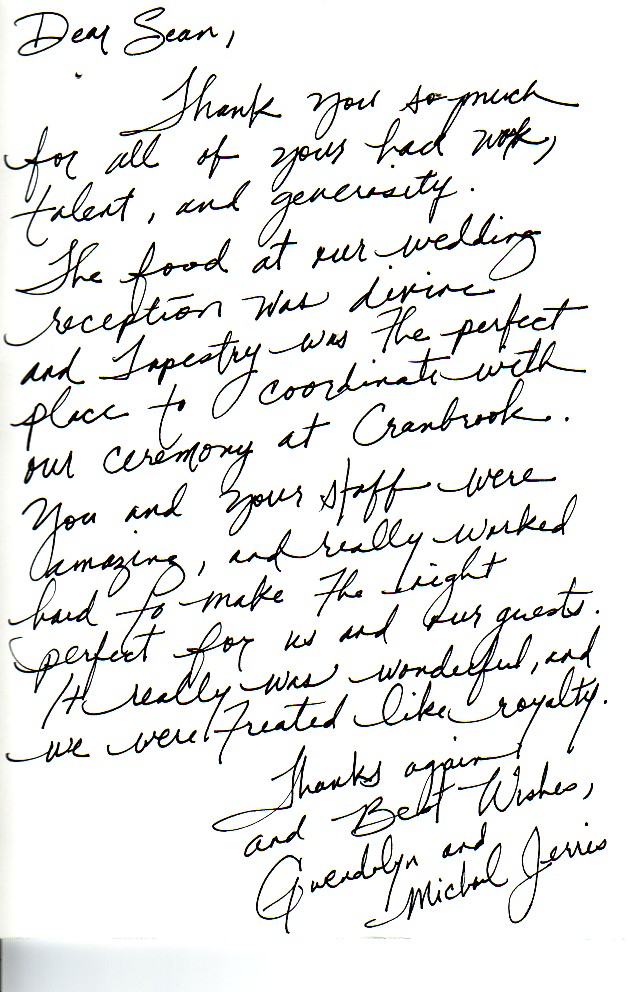 Dear Sean,
Thank you so much
for all of your hard work,
talent, and generosity.
The food at our wedding
reception was divine
and Tapestry was the perfect
place to coordinate with
our ceremony at Cranbrook.
You and your staff were
amazing, and really worked
hard to make the night
perfect for us and our guests.
It really was wonderful, and
we were treated like royalty.
Thanks again,
and Best Wishes,
Gwendolyn and
Michael Jerris